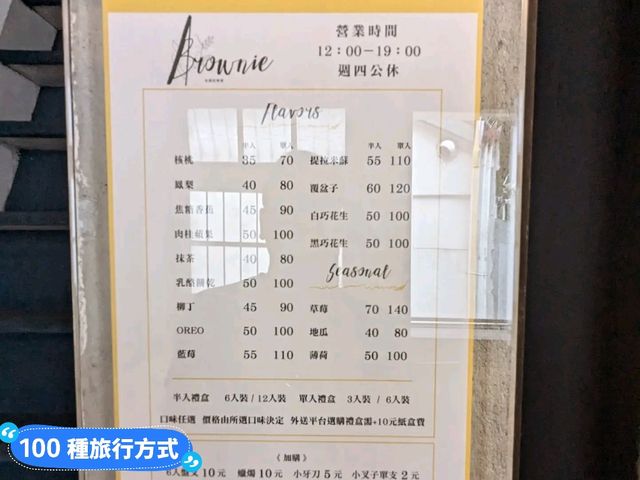 Brownie
營業時間
12：00－19：00
週四公休
Flavors
半人 單人
核桃 35 70
鳳梨 40 80
焦糖香蕉 45 90
肉桂蘋果 50 100
抹茶 40 80
乳酪餅乾 50 100
柳丁 45 90
OREO 50 100
藍莓 55 110
半人 單人
提拉米蘇 55 110
覆盆子 60 120
白巧花生 50 100
黑巧花生 50 100
Seasonal
草莓 70 140
地瓜 40 80
薄荷 50 100
半人禮盒 6人裝 / 12人裝 單人禮盒 3人裝 / 6人裝
口味任選 價格由所選口味決定 外送平台選購禮盒需+10元紙盒費
《 加購 》
6人盤叉 10 元 蠟燭 10 元 小牙刀 5 元 小叉子單支 2 元
100 種旅行方式